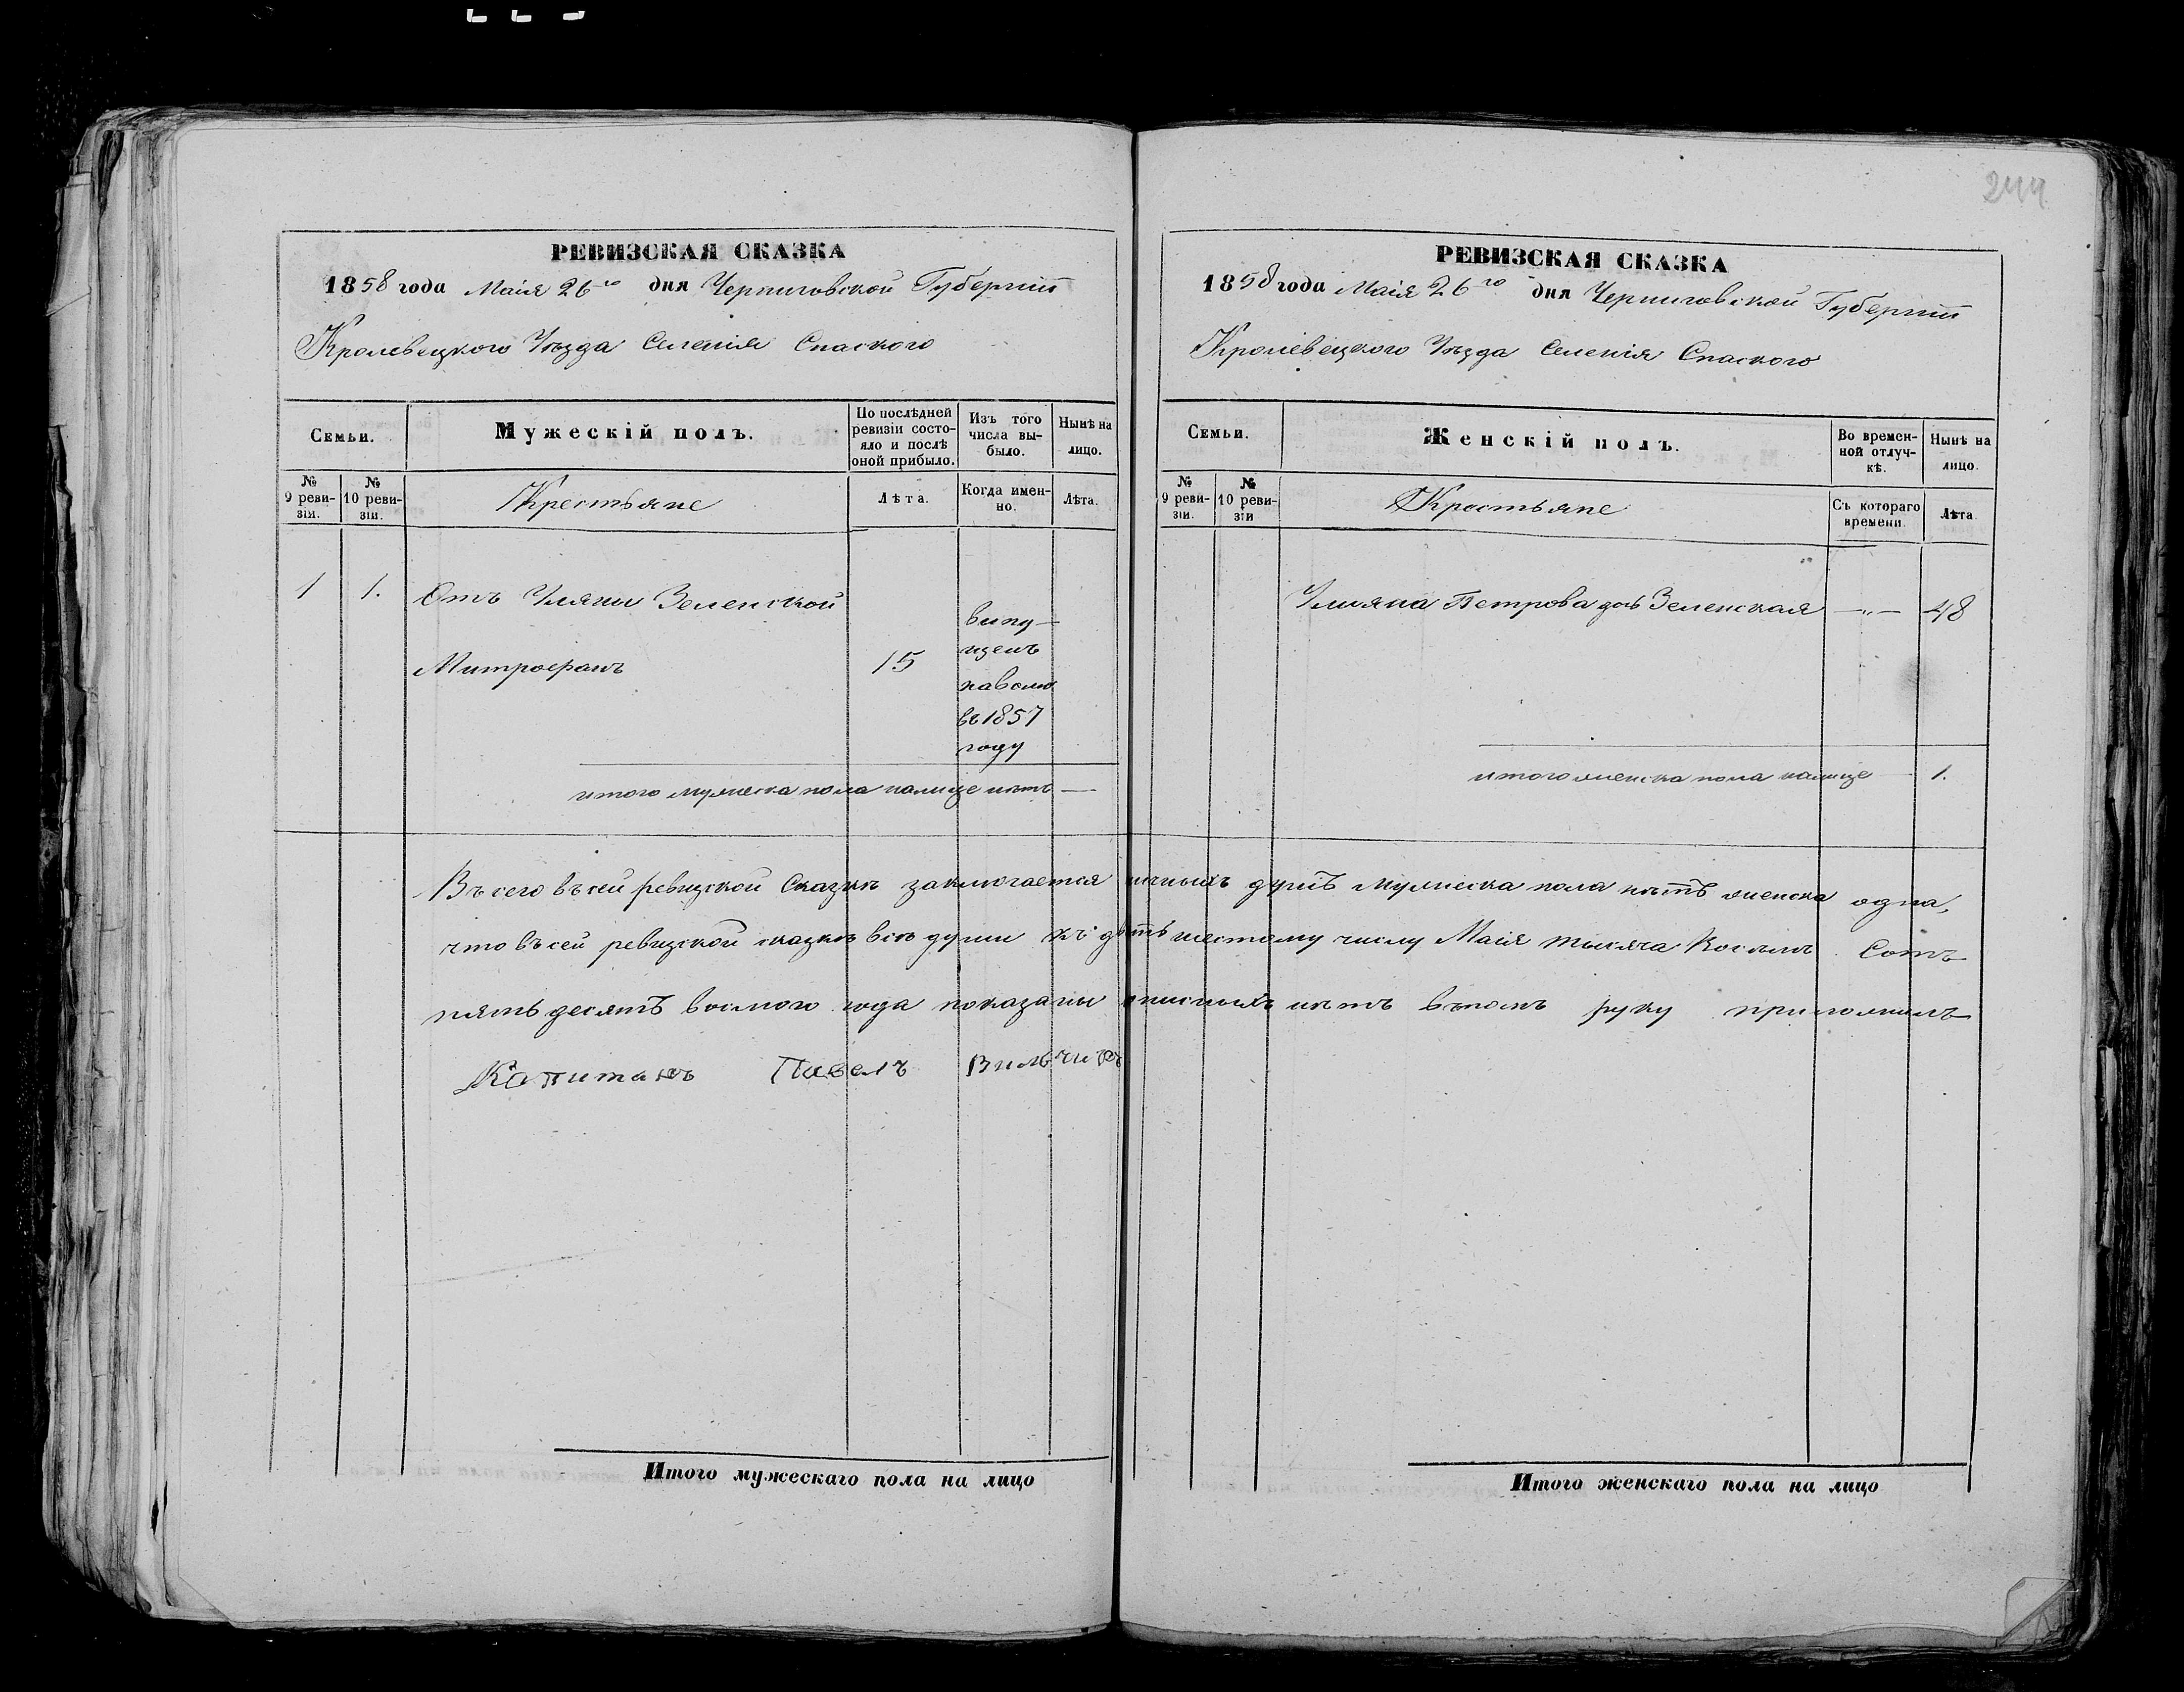 244
РЕВИЗСКАЯ СКАЗКА
1858 года Маія 26го дня Черниговской Губерніи
Кролевецкого Уѣзда Селенія Спаского
Семьи.
Мужескій полъ.
По послѣдней ревизіи состояло и послѣ оной прибыло.
Изъ того числа выбыло.
Нынѣ на лицо.
№ 9 ревизіи.
№ 10 ревизіи.
Крестьяне
Лѣта.
Когда именно.
Лѣта.
1 1. Отъ Уляны Зеленской
Митрофанъ 15
выпу-
щенъ
наволю
въ 1857
году
итого мужеска пола налице нѣтъ —
РЕВИЗСКАЯ СКАЗКА
1858 года Маія 26го дня Черниговской Губерніи
Кролевецкого Уѣзда Селенія Спаского
Семьи.
Женскій полъ.
Во временной отлучкѣ.
Нынѣ на лицо.
№ 9 ревизіи.
№ 10 ревизіи
Крестьяне
Съ котораго времени.
Лѣта
Улияна Петрова дочь Зеленская —„— 48
итого женска пола налице 1.
Въсего въсей ревизской Сказкѣ заключается душъ мужеска пола нѣтъ женска одна,
что въсей ревизской сказкѣ всѣ души шестому числу Маія тысяча Восемь Сотъ
пять десятъ восмого года показаны нѣтъ вътомъ руку приложилъ
Капитанъ Павелъ
Итого мужескаго пола на лицо
Итого женскаго пола на лицо